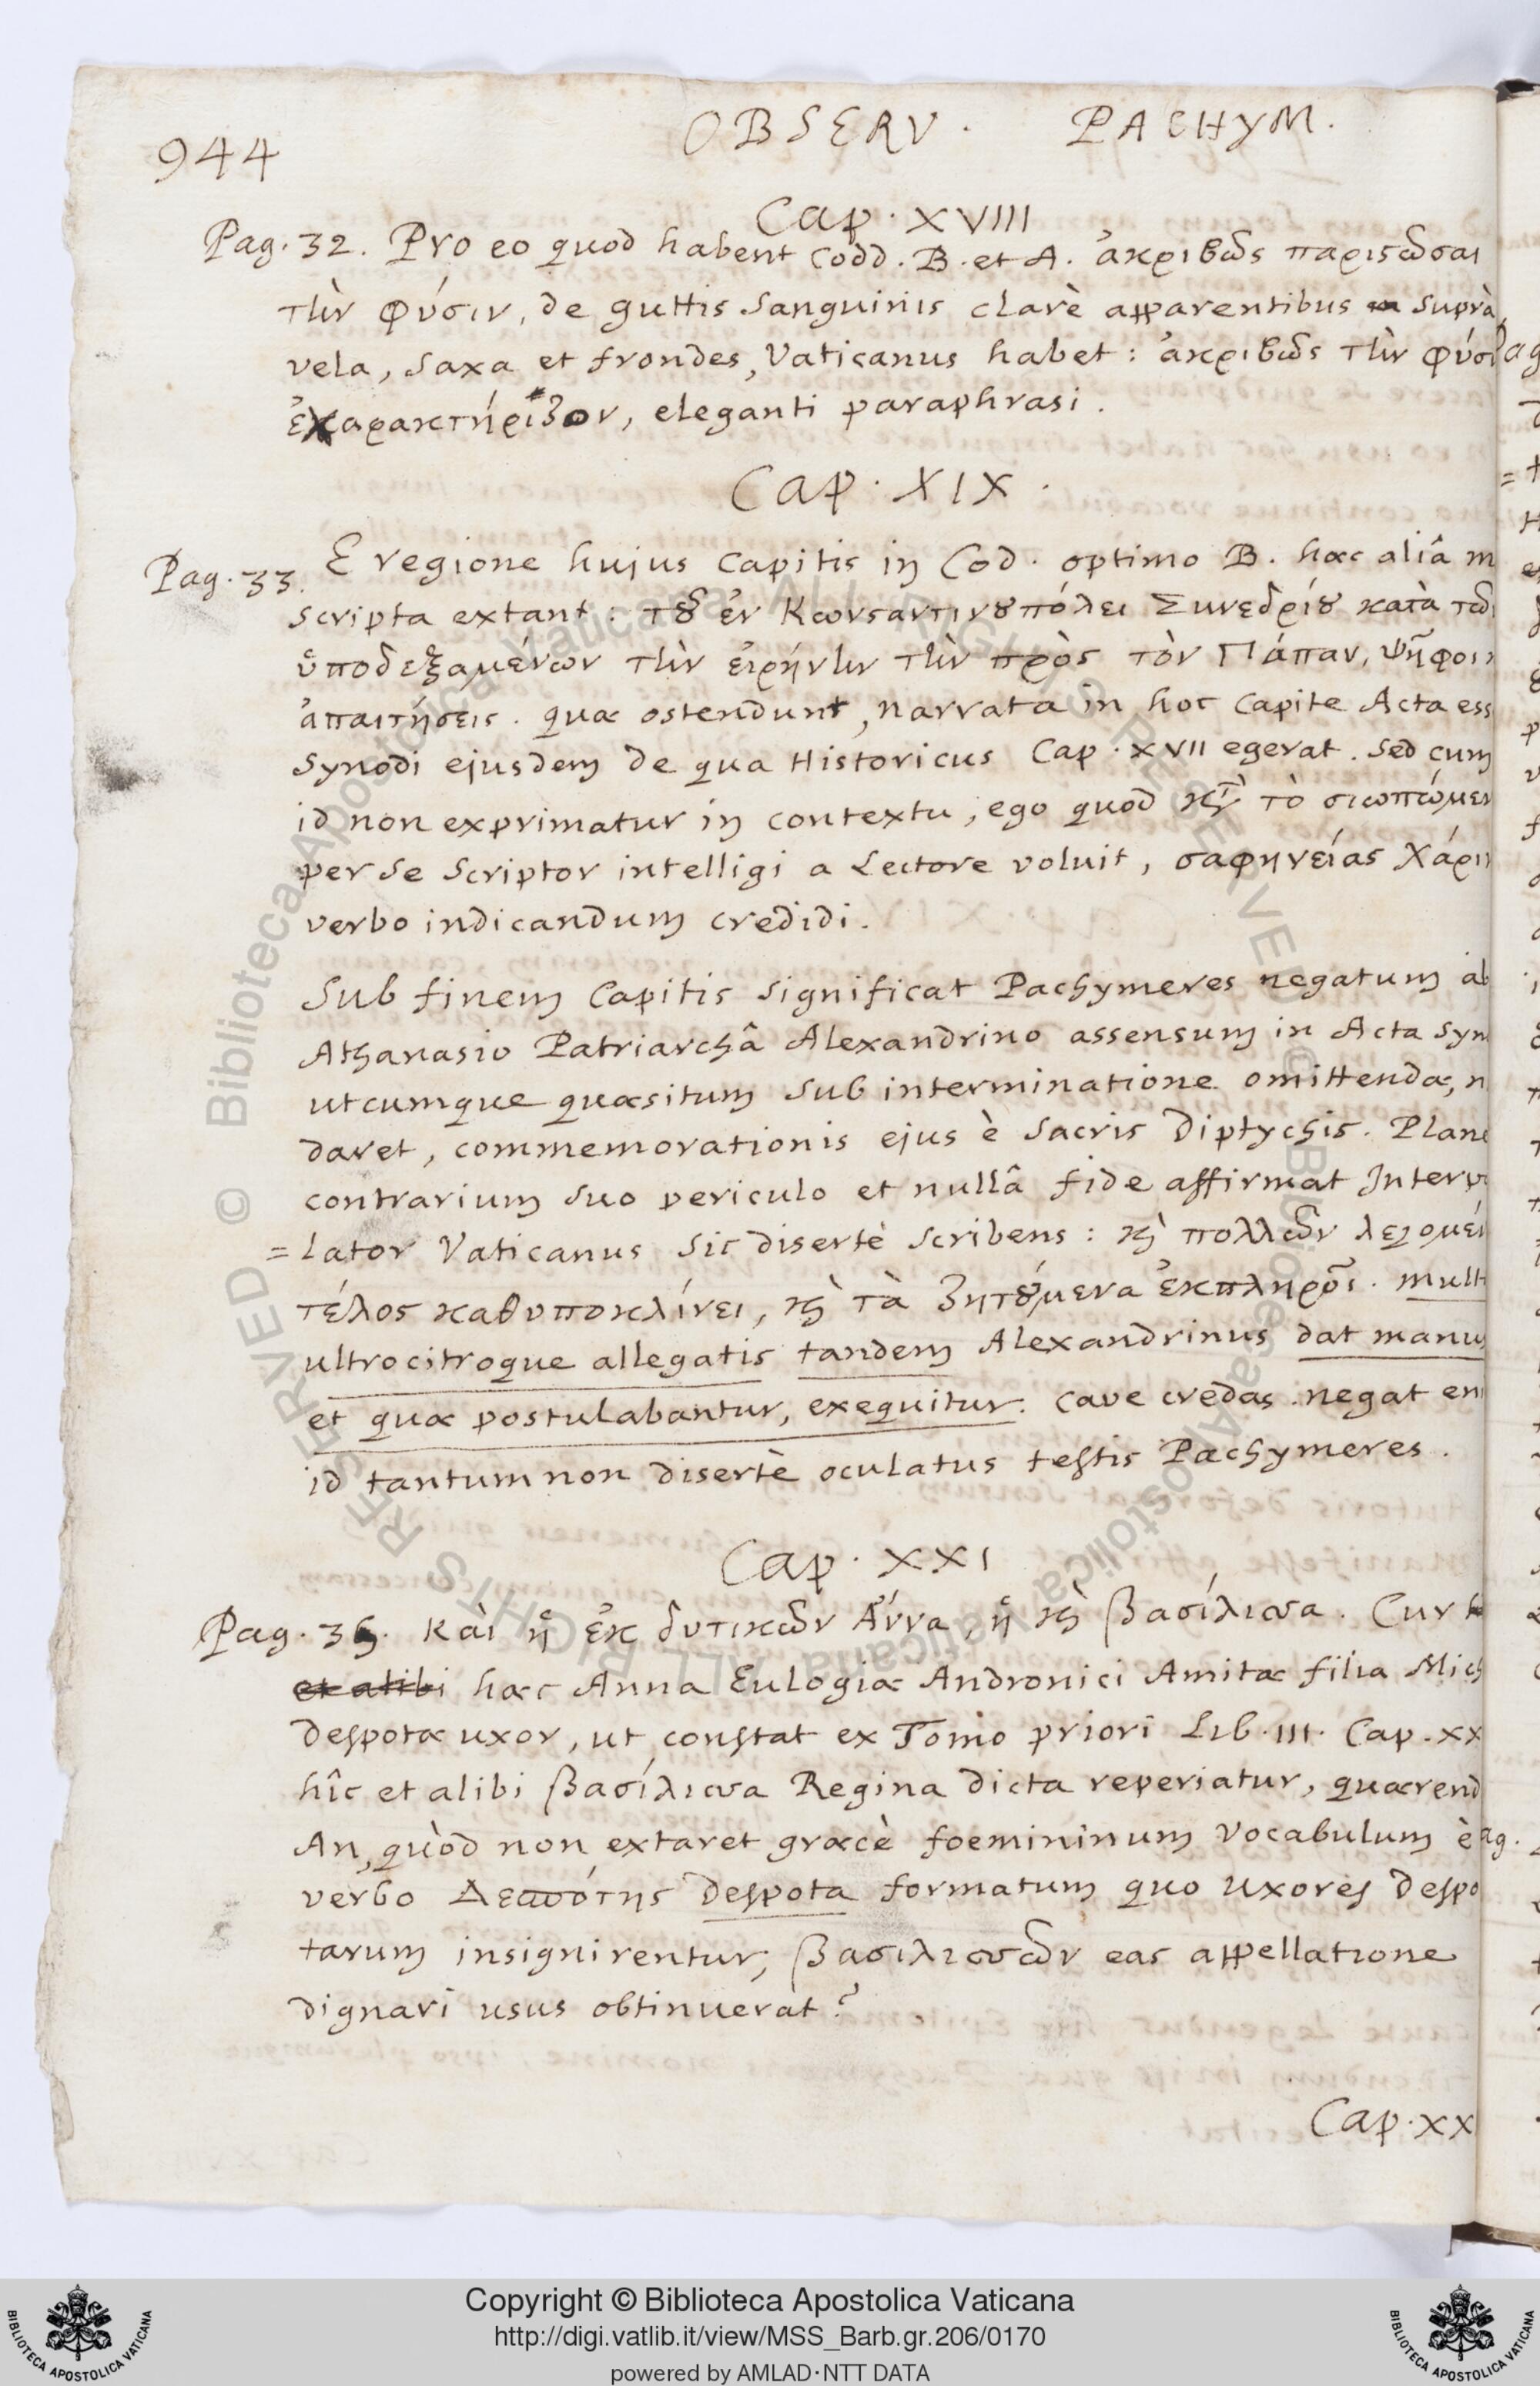 944
OBSERV. PACHYM.
Cap. XVIII
Pag. 32. Pro eo quod habent Codd. B. et A. ἀκριβῶς παριςῶσαι
τὴν φύσιν, de guttis sanguinis clarè apparentibus suprà
vela, saxa et frondes, Vaticanus habet: ἀκριβῶς τὴν φύσι
ἐχαρακτήριζον, eleganti paraphrasi.
Cap. XIX.
Pag. 33. E regione hujus Capitis in Cod. optimo B. hæc aliâ m
scripta extant: τȣ͂ ἐν Κωνςαντινȣπόλει Συνεδρίȣ κατὰ τῶ
ὑποδεξαμένων τὴν εἰρήνην τὴν πρὸς τὸν Πάπαν, ψῆφοι
ἀπαιτήσεις. quæ ostendunt, narrata in hoc Capite Acta ess
Synodi ejusdem de qua Historicus Cap. XVII egerat. Sed cum
id non exprimatur in contextu, ego quod κτ̀ τὸ σιωπώμεν
per se Scriptor intelligi a Lectore voluit, σαφηνείας χάριν
verbo indicandum credidi.
Sub finem Capitis significat Pachymeres negatum ab
Athanasio Patriarchâ Alexandrino assensum in Acta Syn
utcumque quæsitum sub interminatione omittendæ, n
daret, commemorationis ejus è sacris Diptychis. Plane
contrarium suo periculo et nullâ fide affirmat Interpo
=lator Vaticanus sic disertè scribens: ϗ̀ πολλῶν λεγομέν
τέλος καθυποκλίνει, ϗ̀ τὰ ζητȣ́μενα ἐκπληροῖ. mult
ultrocitroque allegatis tandem Alexandrinus dat manus
et quæ postulabantur, exequitur. Cave credas. negat eni
id tantum non disertè oculatus testis Pachymeres.
Cap. XXI
Pag. 35. Καὶ ἡ ἐκ δυτικῶν Ἄννα, ἡ ϗ̀ βασίλισσα. Cur
et alibi hæc Anna Eulogiæ Andronici Amitæ filia Mich
despotæ uxor, ut constat ex Tomo priori Lib. III. Cap. XX
hîc et alibi βασίλισσα Regina dicta reperiatur, quærend
An, quòd non extaret græcè foemininum vocabulum è
verbo Δεσπότης Despota formatum quo uxores Despo
tarum insignirentur, βασιλισσῶν eas appellatione
dignari usus obtinuerat?
Cap. XX
© Biblioteca Apostolica Vaticana ALL RIGHTS RESERVED
© Biblioteca Apostolica Vaticana ALL RIGHTS RESERVED
Copyright © Biblioteca Apostolica Vaticana
http://digi.vatlib.it/view/MSS_Barb.gr.206/0170
powered by AMLAD·NTT DATA
BIBLIOTECA APOSTOLICA VATICANA
BIBLIOTECA APOSTOLICA VATICANA